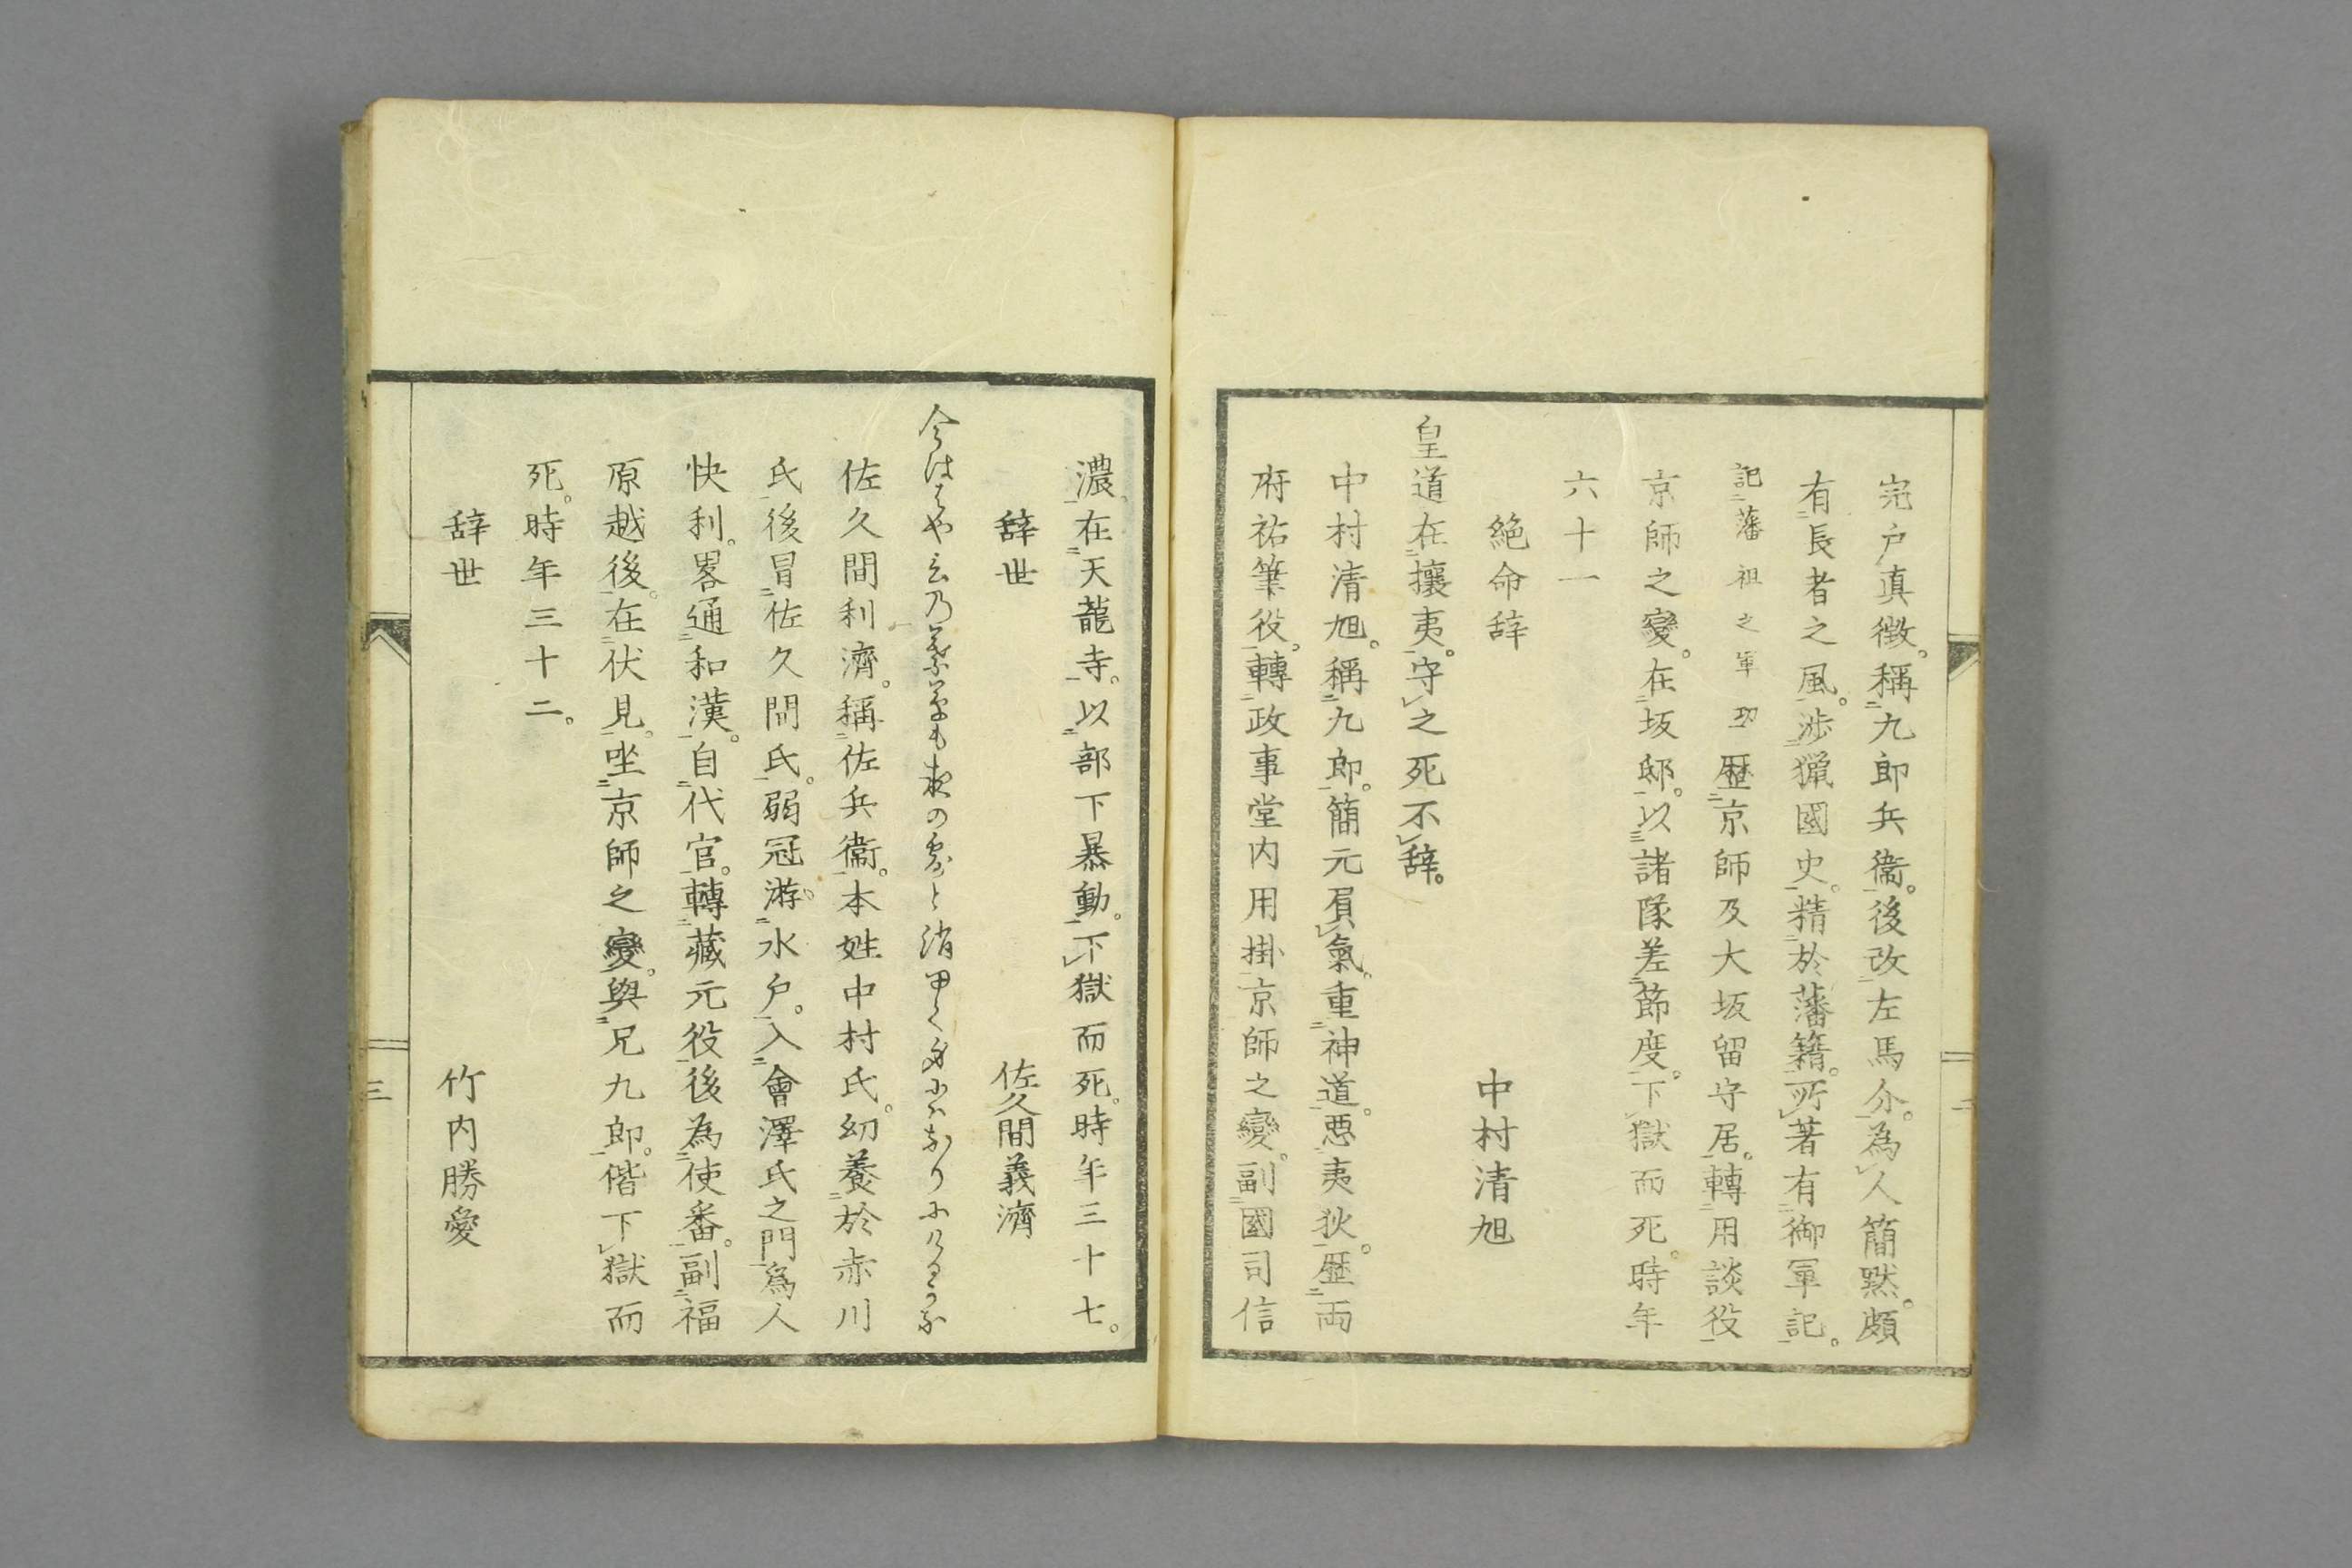 宍戸真徴。稱九郎兵衞。後改左馬介。為人簡黙。頗
有長者之風。渉猟國史。精於藩籍。所著有御軍記。
記藩祖之軍功 歴京師及大坂留守居。轉用談役
京師之變。在坂邸。以諸隊差節度。下獄而死。時年
六十一
絶命辞 中村清旭
皇道在攘夷。守之死不辞。
中村清旭。稱九郎。簡元屓氣。重神道。悪夷狄。歴両
府祐筆役。轉政事堂内用掛京師之變。副國司信
二
濃。在天龍寺。以部下暴動。下獄而死。時年三十七。
辞世 佐久間義濟
今は
佐久間利濟。稱佐兵衞。本姓中村氏。幻養於赤川
氏後冒佐久間氏。弱冠游。水戸。入會澤氏之門為人
快利。畧通和漢。自代官。轉藏元役後為使番。副福
原越後。在伏見。坐京師之變。與兄九郎。偕下獄而
死。時年三十二。
辞世 竹内勝愛
三